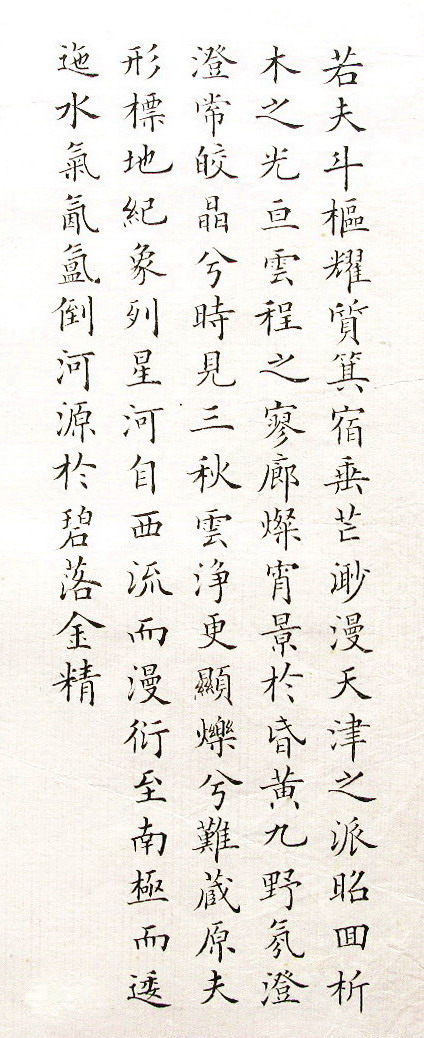 若夫斗樞耀質箕宿垂芒渺漫天津之派昭囬析
木之光亘雲程之寥廊燦宵景於昏黄九野氛澄
澄常皎晶兮時見三秋雲浄更顯爍兮難蔵原夫
形標地紀象列星河自西流而漫衍至南極而逶
迤水氣氤氳倒河源於碧落金精